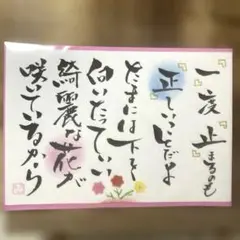 一度「止」まるのも
「正」しいことだよ
たまには下を
向いたっていい
綺麗な花が
咲いているから